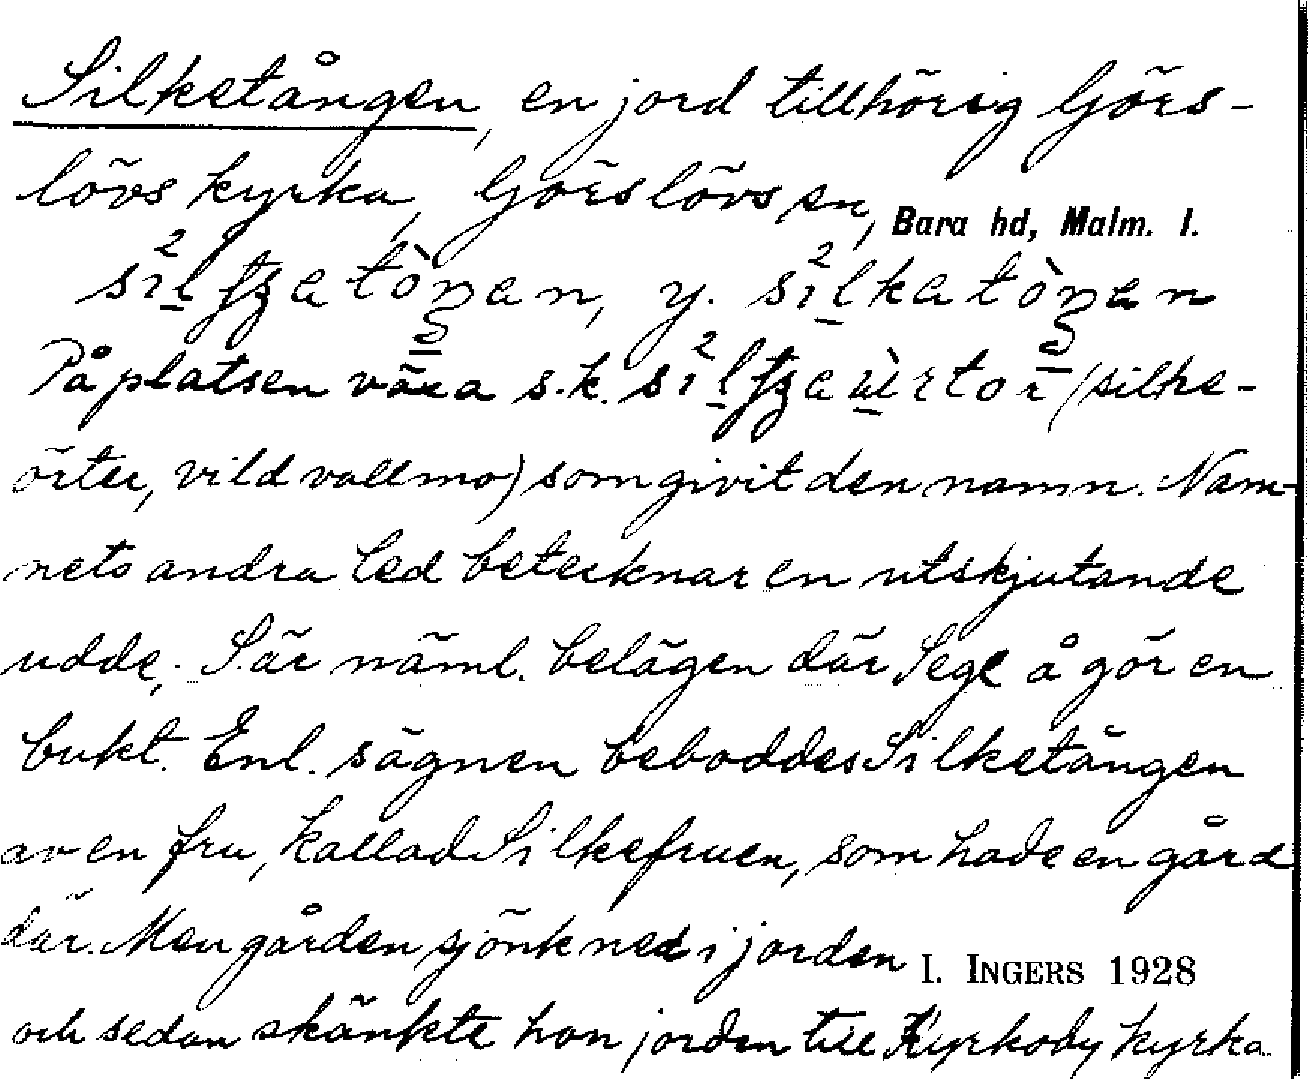 Silketången, en jord tillhörig Görs-
lövs kyrka, Görslövs sn, Bara hd, Malm. l.
y.
På platsen växa s.k. (silke-
örter, vild vallmo) som givit den namn. Nam-
nets andra led betecknar en utskjutande
udde. S. är näml. belägen där Sege å gör en
bukt. Enl. sägnen beboddes Silketången
av en fru, kallad Silkefruen, som hade en gård
där. Men gården sjönk ned i jorden I. INGERS 1928
och sedan skänkte hon jorden till Kyrkoby kyrka